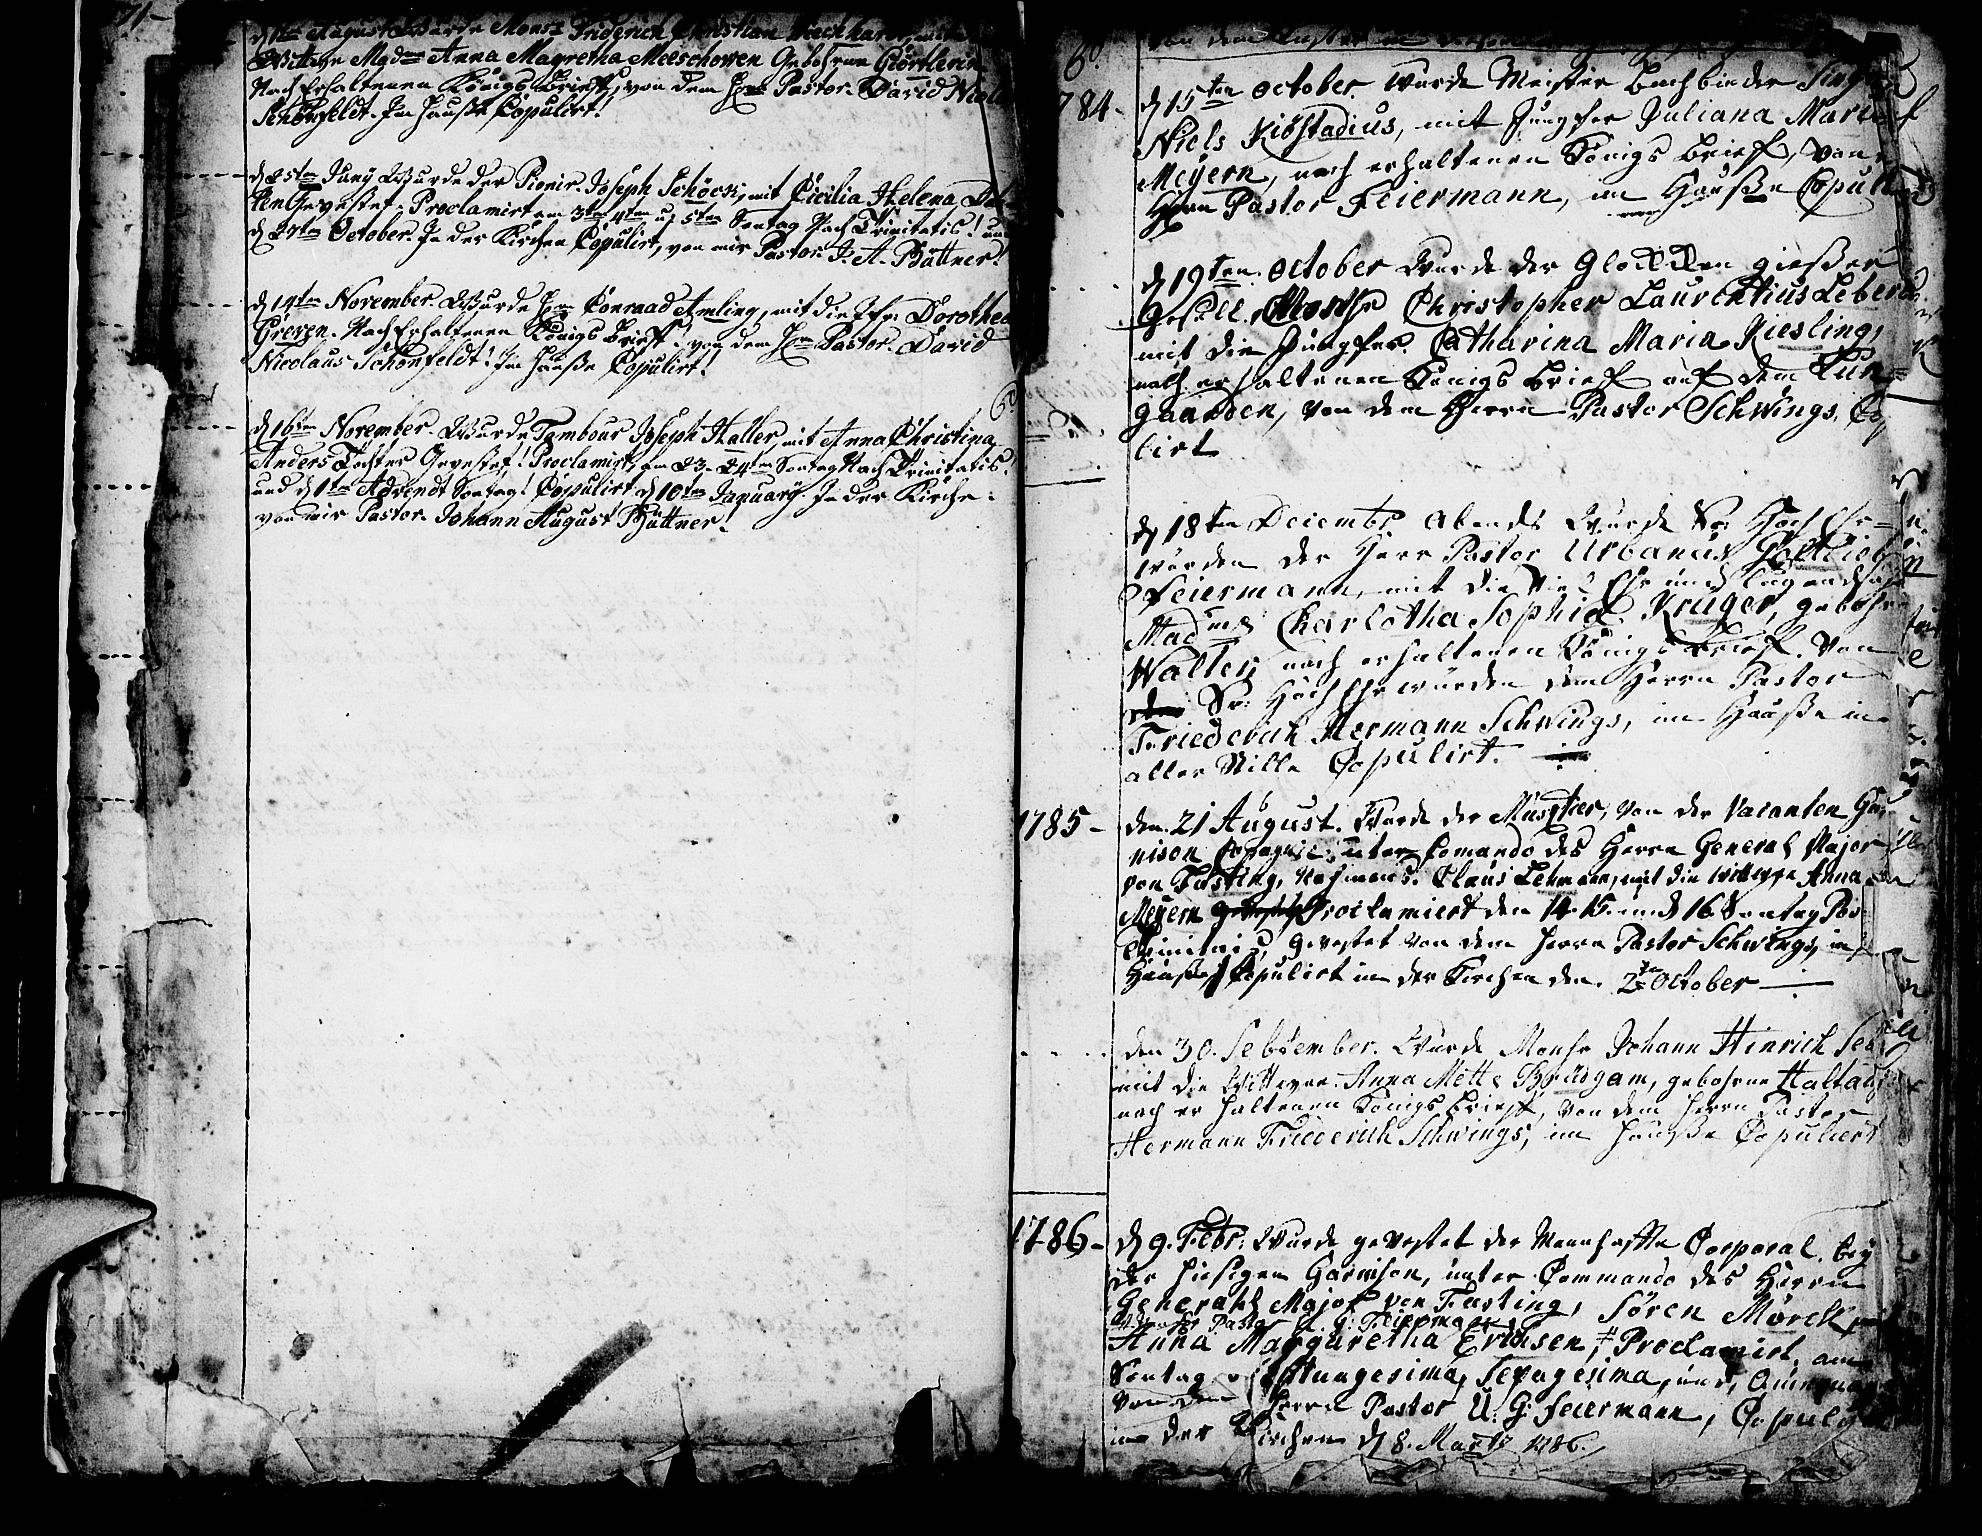 71-
d 1ten August Wurde Monsr Friderich Christian
Wittwe Mgdme Anna Magretha Meeschowen Gebohrne Giörtlerin
Nach Erhaltenen Königs Brieff, von dem Hrn Pastor David Nicol
Schönfeldt. Im Hausse Copulirt!
d 25ten Juny Wurde der Pionir Joseph Schöck, mit Cicilia Helena
Gevestet. Proclamirt am 3ten 4ten u 5ten Sontag Nach Trinitatis! und
d 27ten October. In der Kirchen Copulirt, von mir Pastor J. A. Büttner!
d 14ten November Wurde Hrn Conraad Amling, mit die Jfr Dorothea
Greven. Nach Erhaltenen Königs Brieff, von dem Hrn Pastor David
Nicolaus Schönfeldt! Im Hausse Copulirt!
d 16ten November Wurde Tambour Joseph Haller, mit Anna Christina
Anders Tochter Gevestet! Proclamirt, am 23- 24ten Sontag Nach Trinitatis!
und d 1ten Advendt Sontag! Copulirt d 10ten January In der Kirche
von mir Pastor Johann August Büttner!
1784- d 15ten October wurde Meister Bachbinder
Niels Kiöstadius, mit Jungfer Juliana Maria
Meÿern, nach erhaltenen Königs Brief, von
Herrn Pastor Feiermann, im Hausse Copulirt
d 19ten October Wurde der Glocken giesser
Gesell Monsr Christopher Laurentius Leber
mit die Jungfer Catharina Maria Kiesling,
nach erhaltenen Königs Brief auf dem Tun
gaarden, von dem Herrn Pastor Schwings Co
lirt
d 18ten Decembr Abends Wurde Sr Hoch Ehr
würden der Herr Pastor Urbanus Gottlieb
Feiermann, mit die Viel Ehr und tugendsahme
Madme Charlotha Sophia Krüger, gebohrne
Walter, nach erhaltenen Königs Brief von
Sr Hoch Ehrwürden dem Herrn Pastor
Friederich Hermann Schwings, im Hausse in
aller Stille Copulirt.
1785- den 21 August. Wurde der Musqtier, von der Vacanten Gar
nison Compagnie unter Comando des Herrn General Major
von Fasting, Nahmens Claus Lehmann, mit die Wittwe Anna
Meÿern Proclamiert den 14. 15. und 16 Sontag Post
Trinitatis, gevestet von dem Herrn Pastor Schwings, im
Hausse, Copulirt in der Kirchen den 2ten October
den 30. Sebtember. Wurde Monsr Johann Hinrich
mit die Wittwe Anna Mette Bräutgam, gebohrne Haltau
nach erhaltenen Königs Brieff, von dem Herrn Pastor
Hermann Friederich Schwings, im Hausse Copuliert
1786- d 9. Febr: Wurde gevestet der Mannhaffte Corporal bey
der hiesigen Garnison, unter Commando des Herrn
Generahl Major von Fasting, Sören Mörck mit
Pastor U. G. Feiermann
Anna Margaretha Erichsen, Proclamirt am
Sontag Septuagesima, Sexagesima, und
von dem Herrn Pastor U: G: Feiermann, Copulirt
in der Kirchen d 8. Marty 1786.